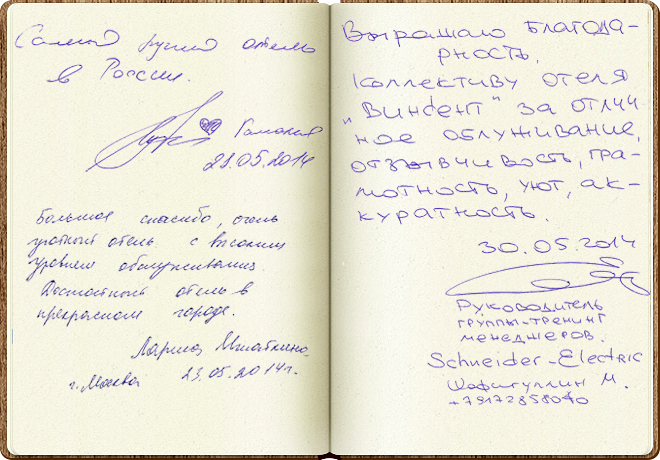 Самый лучший отель
в России.
23.05.2014
Большое спасибо, очень
уютный отель с высоким
уровнем обслуживания.
Достойный отель в
прекрасном городе.
Лариса
г. Москва 23.05.2014г.
Выражаю благода-
рность,
коллективу отеля
"Винсент" за отлич
ное обслуживание,
отзывчивость, гра-
мотность, уют, ак-
куратность.
30.05.2014
Руководитель
группы-тренинг
менеджеров.
Schneider-Electric
Шафигуллин М.
+79172858040